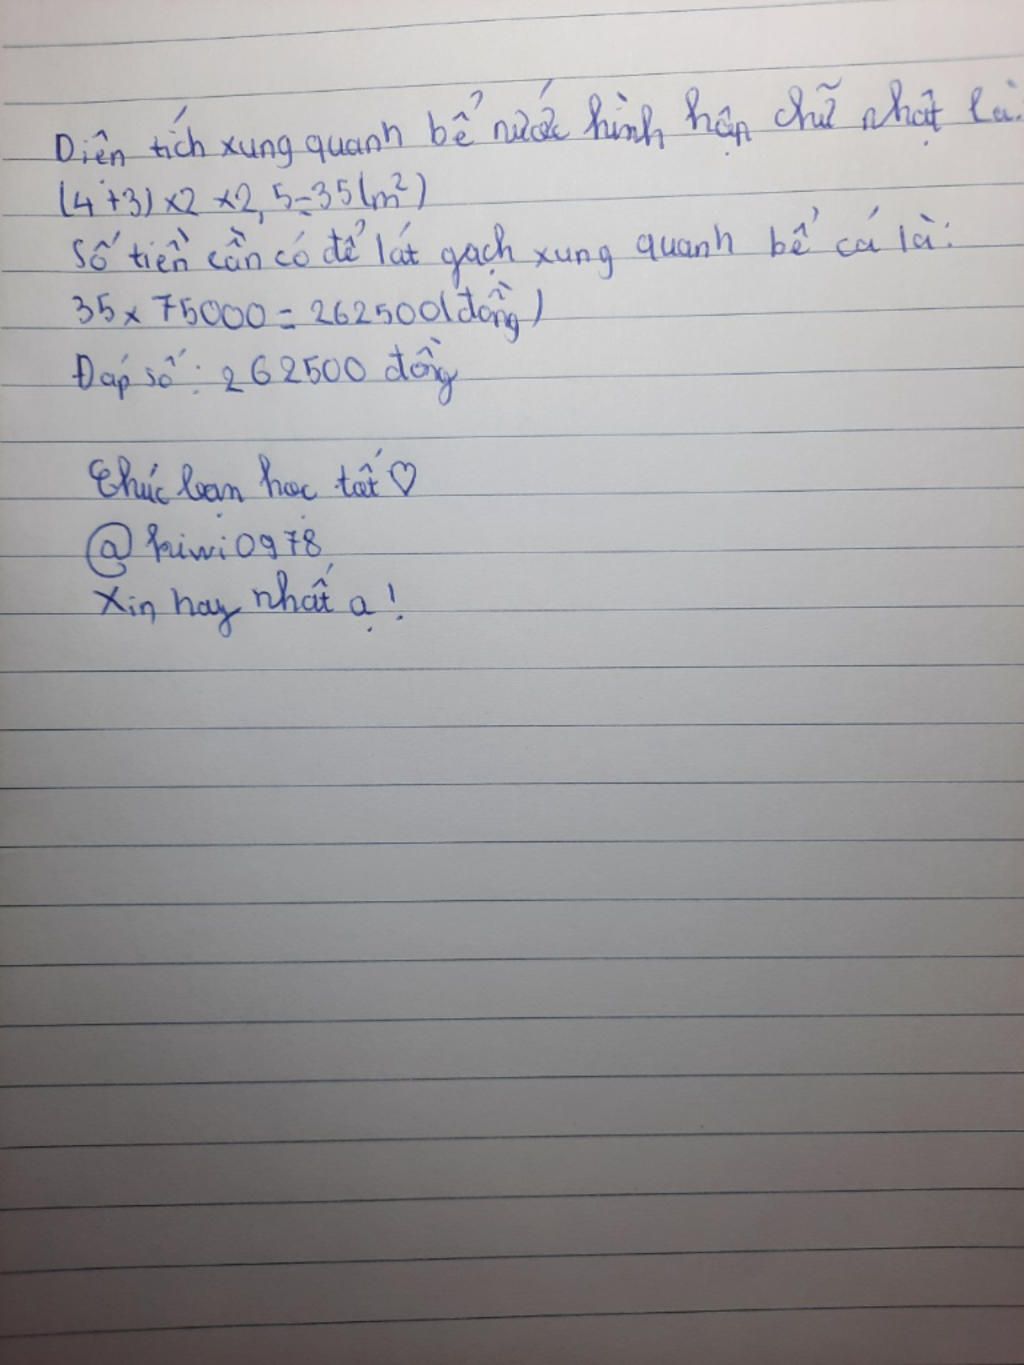 Diện tích xung quanh bể nước hình hộp chữ nhật là:
(4+3)×2×2,5=35(m²)
Số tiền cần có để lát gạch xung quanh bể cá là:
35×75000=262500(đồng)
Đáp số: 262500 đồng
Chúc bạn học tốt♡
@kiwi0978
Xin hay nhất ạ!